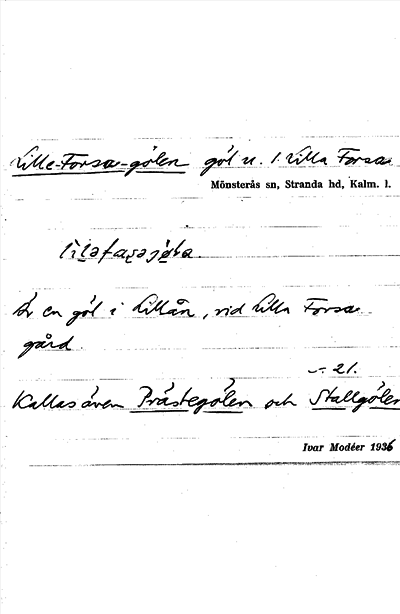 Lille-Forsa-gölen göl u. l. Lilla Forsa
Mönsterås sn, Stranda hd, Kalm. l.
Är en göl i Lillån, vid Lilla Forsa
gård.
– 21.
Kallas även Prästegölen och Stallgölen
Ivar Modéer 1936